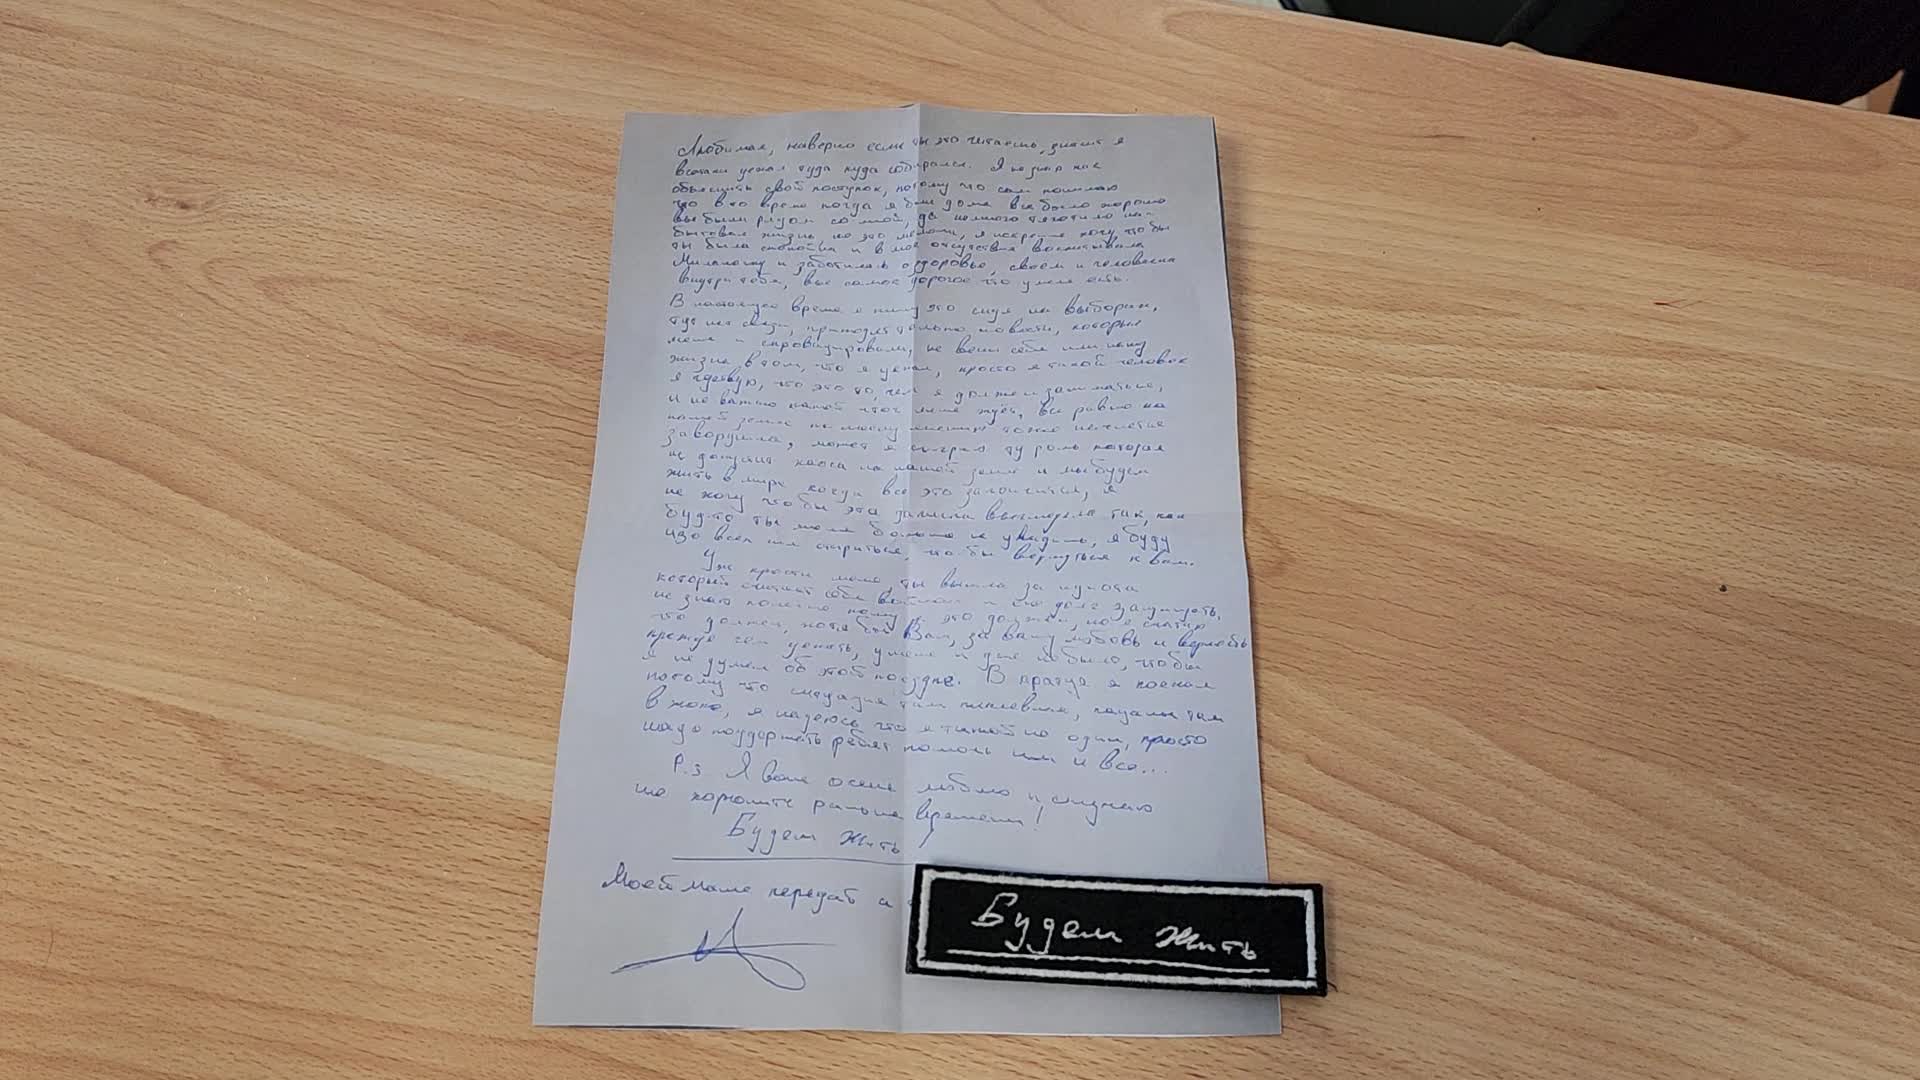 Любимая, наверно если ты это читаешь, значит я
всетаки уехал туда куда собирался. Я не знаю как
объяснить свой поступок, потому что сам понимаю
что в то время когда я был дома все было хорошо
вы были рядом со мной, да немного тяготила
бытовая жизнь но это мелочи, я искренне хочу, чтобы
ты была спокойна и в мое отсутствие воспитывала
Миланочку и заботилась о здоровье, своем и человечка
внутри тебя, вы самое дорогое что у меня есть.
В настоящее время я пишу это сидя на выборах,
тут нет связи, приходят только новости, которые
меня и спровоцировали, не вени себя или нашу
жизнь в том, что я уехал, просто я такой человек
я чувствую, что это то, чем я должен заниматься,
и не важно какой итог меня ждёт, все равно на
нашей земле по моему мнению тоже начнется
заворушка, может я сыграю ту роль которая
не допустит хаоса на нашей земле и мы будем
жить в мире когда все это закончится, я
не хочу чтобы эта записка выглядела так, как
будто ты меня больше не увидишь, я буду
изо всех сил стараться, что бы вернуться к вам.
Уж прости меня, ты вышла за идиота
который считает себя воином и его долг защищать,
не знаю конечно кому я это должен, но я считаю
что должен, хотя бы Вам, за вашу любовь и верность
прежде чем уехать, у меня и дня не было, чтобы
я не думал об этой поездке. В правду я поехал
потому что ситуация там плачевная, пацаны там
в жопе, я надеюсь что я такой не один, просто
надо поддержать ребят помочь им и все...
P.s Я вас очень люблю и скучаю
не хороните раньше времени!
Будем Жить
Моей маме передай а
Будем Жить